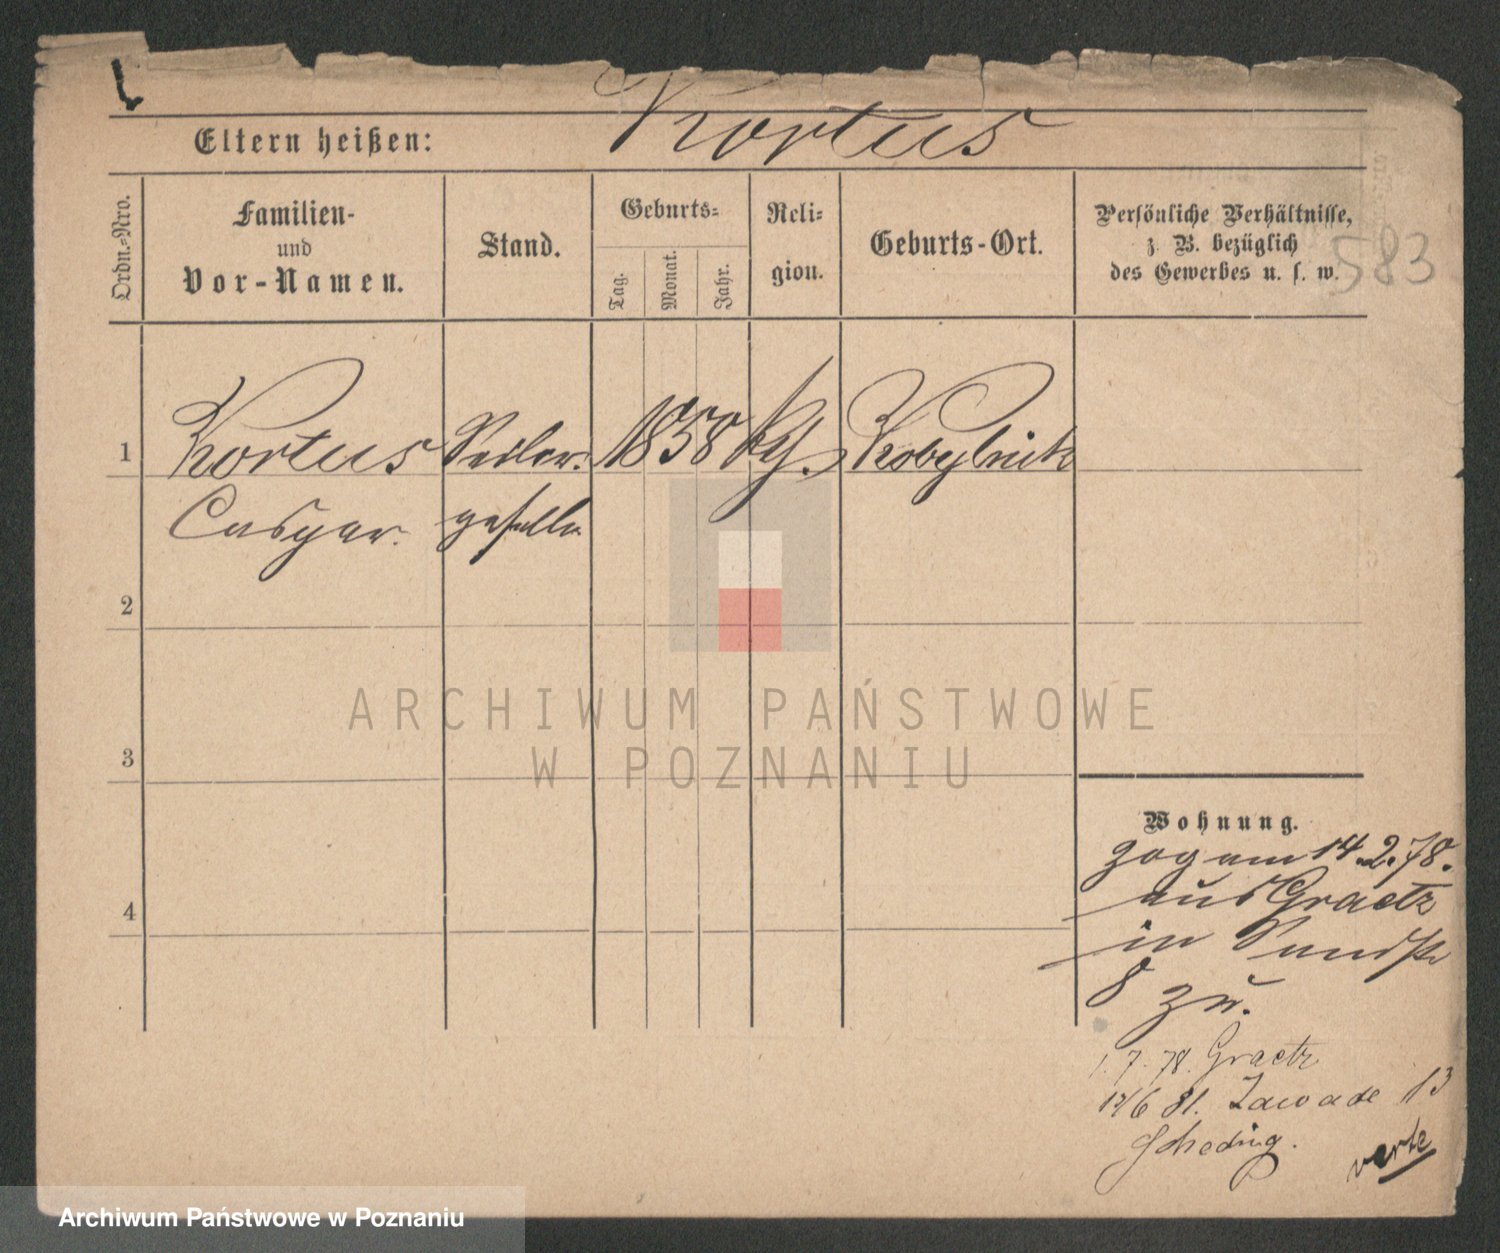 Eltern heißen: Kortus
Ordn.-Nro.
Familien-
und
Vor-Namen.
Stand.
Geburts-
Tag.
Monat.
Jahr.
Reli-
gion.
Geburts-Ort.
Persönliche Verhältnisse,
z. B. bezüglich
des Gewerbes u. s. w.
583
1 Kortus Seiler- 1858 Kobylnik
Caspar. geselle
2
3
4
Wohnung.
zog am 14.2.78.
aus Graetz
in Sandstr
8 zu.
1.7.78. Graetz
6 81. Zawade 13
Scheding.
verte
ARCHIWUM PAŃSTWOWE
W POZNANIU
Archiwum Państwowe w Poznaniu